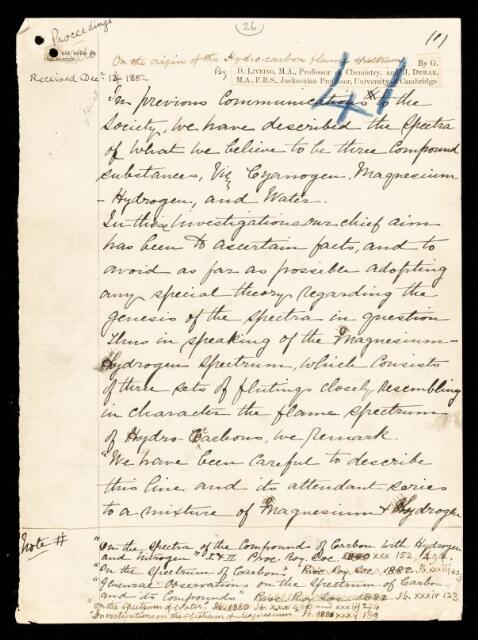 Proceedings
(26)
(1)
On the origin of the Hydro-carbon flame spectrum
By G.
By D. LIVEING, M.A., Professor of Chemistry, and J. DEWAR,
M.A., F.R.S., Jacksonian Professor, University of Cambridge
Received Dec. 13 1882
41
In previous Communications # to the
Society, we have described the Spectra
of what we believe to be three Compound
substances, Viz Cyanogen, Magnesium
- Hydrogen, and Water.
In these investigations our chief aim
has been to ascertain facts, and to
avoid as far as possible adopting
any special theory regarding the
genesis of the spectra in question
Thus in speaking of the Magnesium-
Hydrogen Spectrum, which consists
of three sets of flutings closely resembling
in character the flame spectrum
of Hydro-Carbons, we remark.
"We have been careful to describe
this line and its attendant series
to a mixture of Magnesium & Hydrogen
Note #
"On the Spectra of the Compounds of Carbon with Hydrogen
and Nitrogen" I & II Proc Roy Soc 1880 xxx 152, 494
"On the Spectrum of Carbon" Proc Roy Soc 1882
"General Observations on the Spectrum of Carbon
and its Compounds" Proc Roy Soc 1882 Ib. xxxiv 123
On the spectrum of Water, Ib. 1880 Ib. xxx 480 and xxxiij 274
Investigations on the spectrum of Magnesium Ib. 1881 xxxij 189